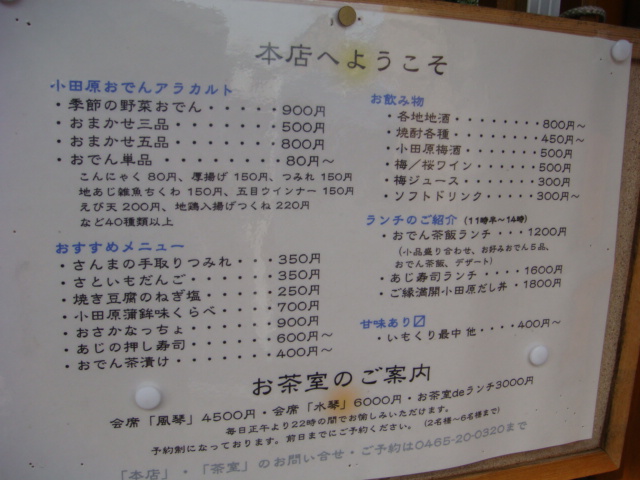 本店へようこそ
小田原おでんアラカルト
・季節の野菜おでん・・・・・900円
・おまかせ三品・・・・・・・500円
・おまかせ五品・・・・・・・800円
・おでん単品・・・・・・・80円～
こんにゃく 80円、厚揚げ 150円、つみれ 150円
地あじ雑魚ちくわ 150円、五目ウインナー 150円
えび天 200円、地鶏入揚げつくね 220円
など40種類以上
おすすめメニュー
・さんまの手取りつみれ・・・350円
・さといもだんご・・・・・・350円
・焼き豆腐のねぎ塩・・・・・250円
・小田原蒲鉾味くらべ・・・・700円
・おさかなっちょ・・・・・・900円
・あじの押し寿司・・・・・・600円～
・おでん茶漬け・・・・・・・400円～
お飲み物
・各地地酒・・・・・・・・800円～
・焼酎各種・・・・・・・・450円～
・小田原梅酒・・・・・・・500円
・梅／桜ワイン・・・・・・500円
・梅ジュース・・・・・・・300円
・ソフトドリンク・・・・・300円～
ランチのご紹介（11時半～14時）
・おでん茶飯ランチ・・・1200円
（小品盛り合わせ、お好みおでん5品、
おでん茶飯、デザート）
・あじ寿司ランチ・・・・1600円
・ご縁満開小田原だし丼・1800円
甘味あり〼
・いもくり最中 他・・・・400円～
お茶室のご案内
会席「風琴」4500円・会席「水琴」6000円・お茶室deランチ3000円
毎日正午より22時の間でお愉しみいただけます。
予約制になっております。前日までにご予約ください。（2名様～6名様まで）
「本店」・「茶室」のお問い合せ・ご予約は0465-20-0320まで